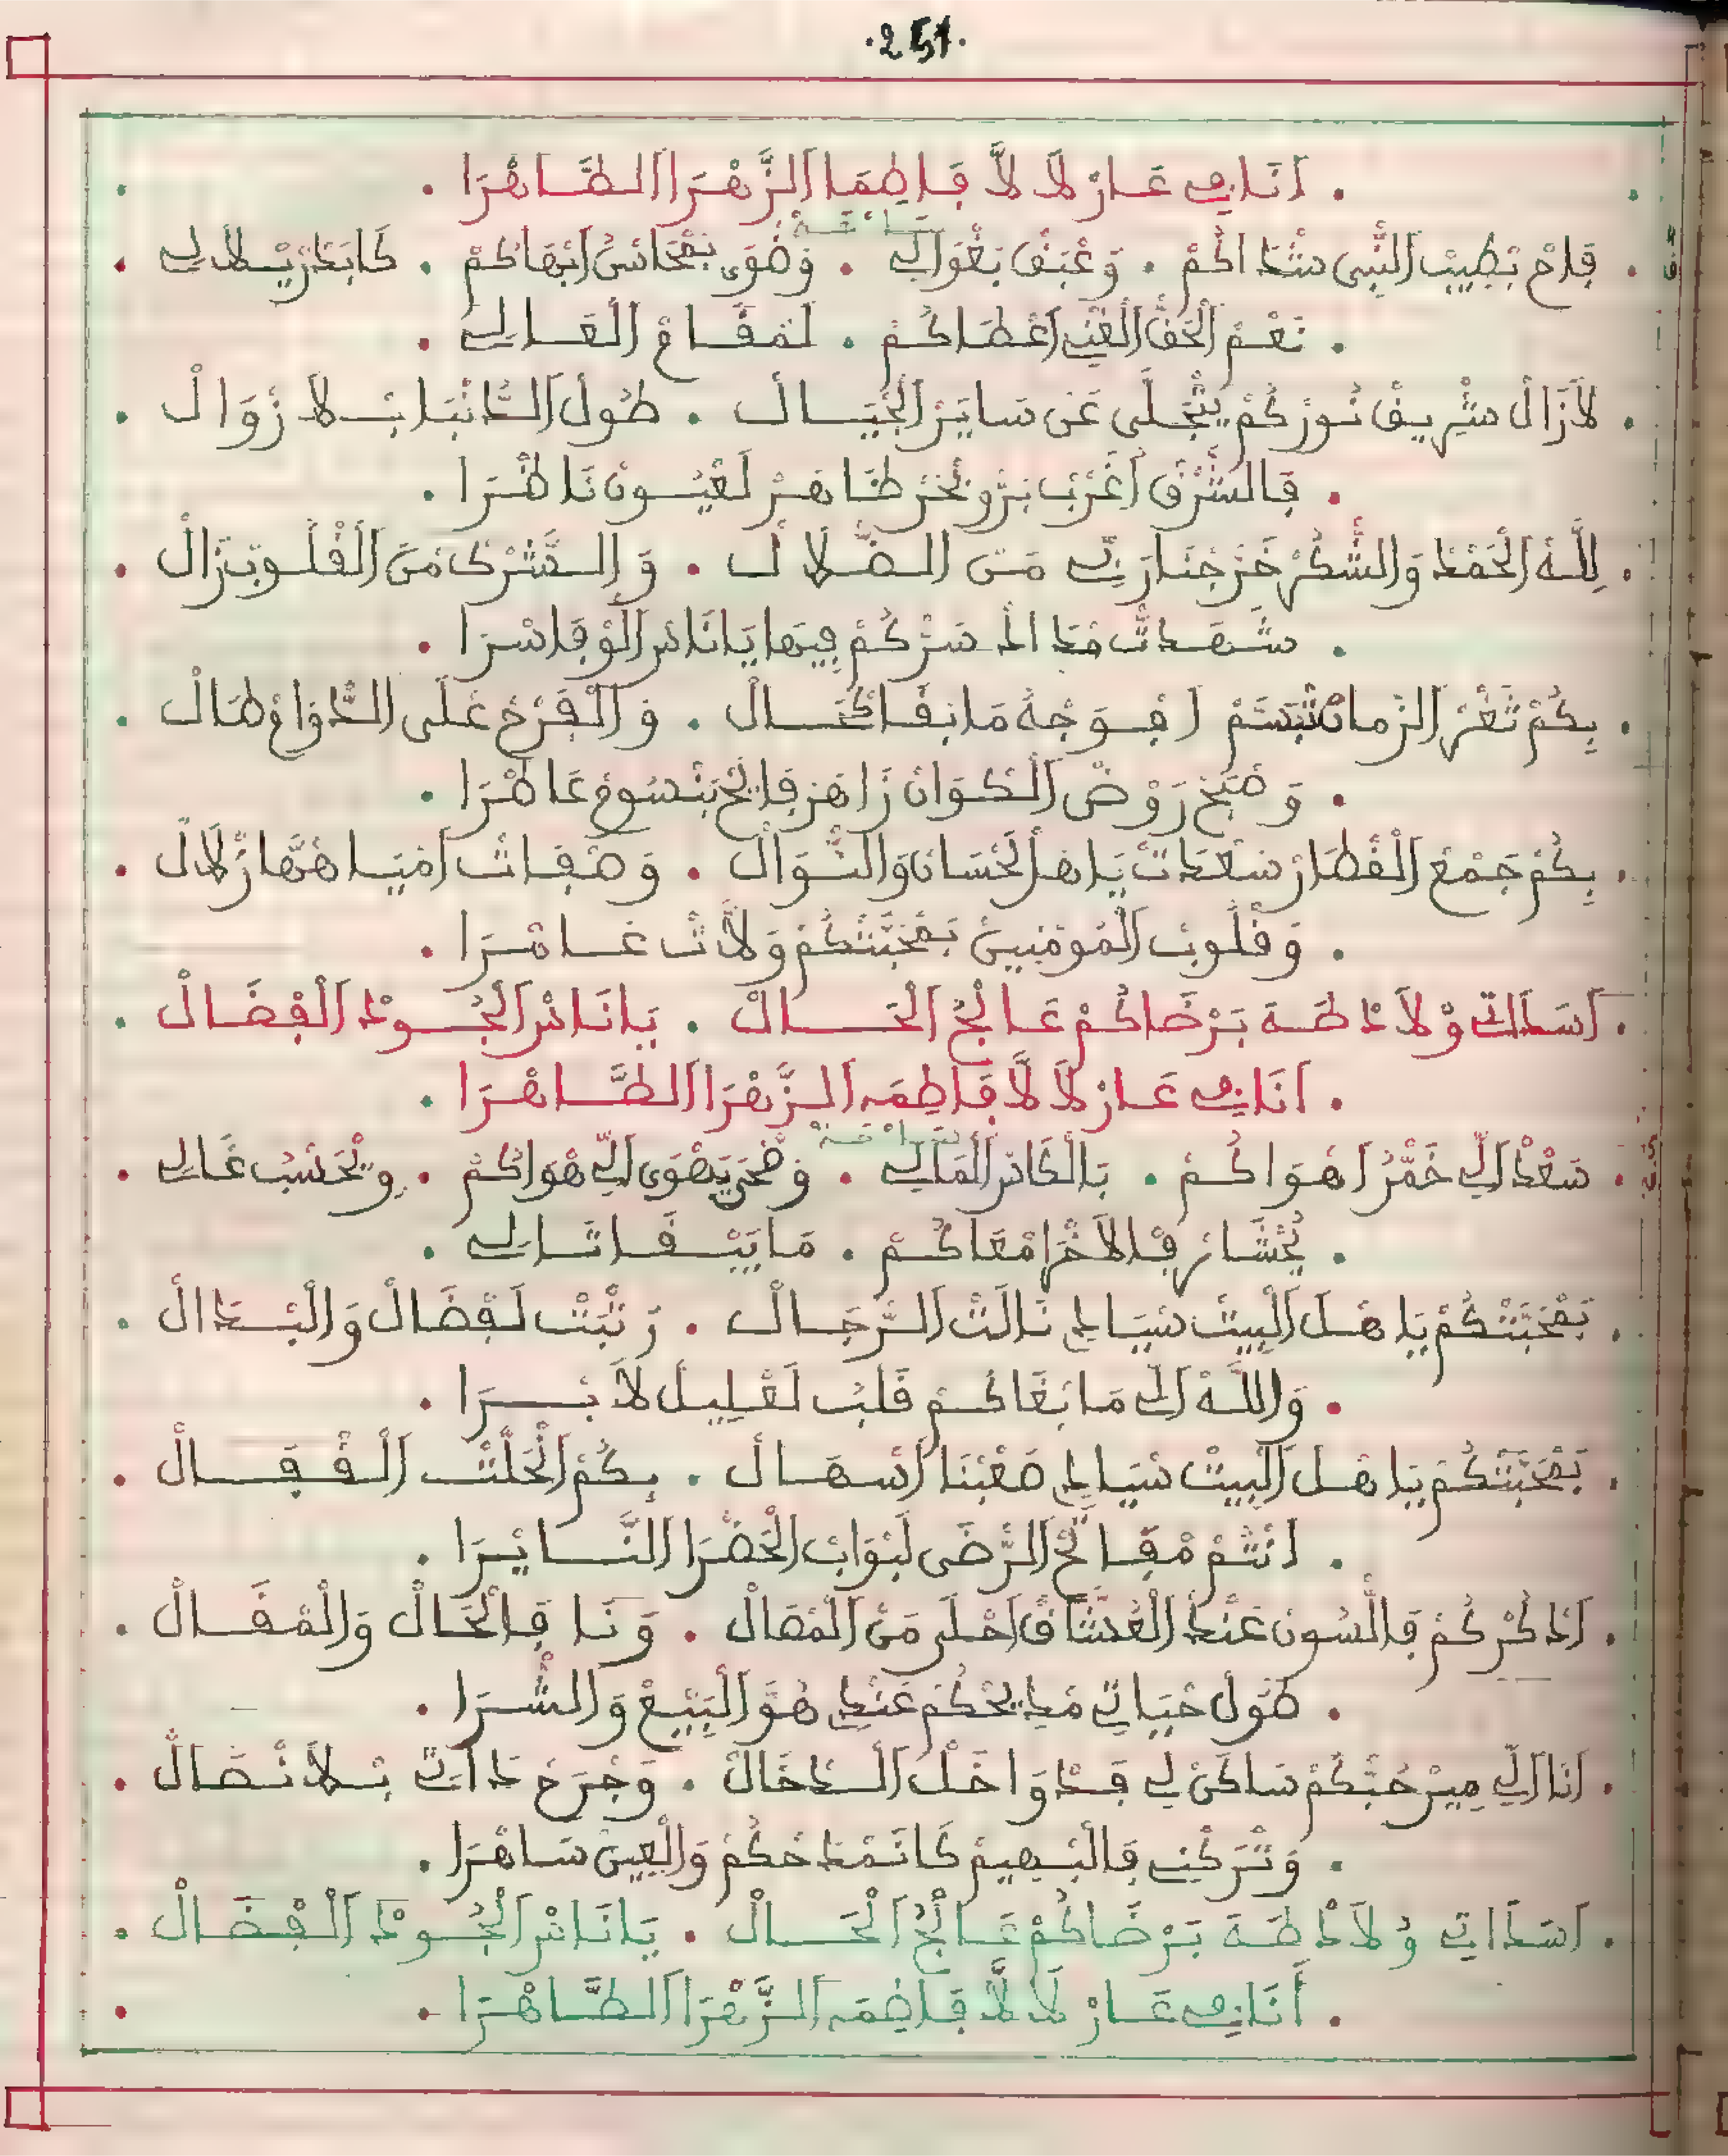 .251.
. أَنَا فِي عَارْ لَالَّا فَاطِمَا الزَّهْرَا الطَّاهْرَا .
. فَاحْ بْطِيبْ النّْبِي شْدَاكُمْ . وَعْبَقْ بَغْوَالِي . وَضْوَى بَمْحَاسَنْ ابْهَاكُمْ . كَابَدْرْ يْلَالِي .
. نَعْمْ الْحَقّْ الْغْنِي اعْطَاكُمْ . لَمْقَامْ الْعَالِي .
. لَازَالْ شْرِيفْ نُورْكُمْ يَتْجَلَّى عَنْ سَايَرْ الْجْيَالْ . طُولْ الدَّنْيَا بْلَا زْوَالْ .
. فَالشَّرْقْ اغْرَبْ بَرّْ وبْحَرْ ظَاهَرْ لَعْيُونْ نَاظْرَا .
. لِلَّهْ الْحَمْدْ وَالشُّكْرْ خَرَّجْنَا رَبِّي مَنْ الضّْلَالْ . وَالشَّرْكْ مَنْ الْقْلُوبْ زَالْ .
. شَهْدَتْ سَرّْكُمْ فِيهَا يَا نَاسْ الْوْفَا سْرَا .
. بِكُمْ ثَغْرْ الزْمَانْ تْبَسَّمْ افْوَجْهُ مَا بْقَا كْحَالْ . وَالْفَرْحْ عْلَى الدّْوَامْ طَالْ .
. وَصْبَحْ رَوْضْ الْكْوَانْ زَاهَرْ فَايَحْ بَنْسُومْ عَاطْرَا .
. بِكُمْ جَمْعْ الْقْطَارْ سَعْدَتْ يَاهْلْ الْحْسَانْ وَالنّْوَالْ . وَصْفَاتْ امْيَاهْهَا زْلَالْ .
. وَقْلُوبْ الْمُومْنِينْ بَمْحَبَّتْكُمْ وَلَّاتْ عَامْرَا .
. اسَدَاتِي وْلَادْ طَهَ بَرْضَاكُمْ عَالْجُ الْحَالْ . يَا نَاسْ الْجُودْ الْفْضَالْ .
. أَنَا فِي عَارْ لَالَّا فَاطِمَه الزَّهْرَا الطَّاهْرَا .
. سَعْدْ الِّي خَمَّرْ اهْوَاكُمْ . بَالْكَاسْ الْمَالِي . وَضْحَى يَهْوَى الِّي هْوَاكُمْ . وِيْحَسْبُ غَالِي .
. يُحْشَارْ فَالَاخْرَا مْعَاكُمْ . مَا يَبْقَا تَالِي .
. بَمْحَبَّتْكُمْ يَاهْلْ الْبِيتْ سْيَادِي نَالَتْ الرّْجَالْ . رَتْبَتْ لَفْضَالْ وَالْبْدَالْ .
. وَاللَّهْ الِّي مَا بْغَاكُمْ قَلْبُ لَعْلِيلْ لَا بْرَا .
. بَمْحَبَّتْكُمْ يَاهْلْ الْبِيتْ سْيَادِي صَعْبْنَا اسْهَالْ . بِكُمْ انْحَلَّتْ الْقْفَالْ .
. انْتُمْ مْفَاتَحْ الرّْضَى لَبْوَابْ الْخَضْرَا النَّايْرَا .
. اذْكْرْكُمْ فَاللّْسُونْ عَنْدْ الْعُشَّاقْ احْلَى مَنْ الْمْصَالْ . وَنَا فَالْحَالْ وَالْمْقَالْ .
. طُولْ حْيَاتِي مَدْحْكُمْ عَنْدِي هُوَّ الْبِيعْ وَالشّْرَا .
. انَا الِّي مِيرْ حُبّْكُمْ سَاكَنْ لِي فَدْوَاخَلْ الدّْخَالْ . وَجْرَحْ دَاتِي بْلَا نْصَالْ .
. وَتْرَكْنِي فَالْبْهِيمْ كَانَمْدَحْكُمْ وَالْعِينْ سَاهْرَا .
. اسَدَاتِي وُلَادْ طَهَ بَرْضَاكُمْ عَالْجُ الْحَالْ . يَا نَاسْ الْجُودْ الْفْضَالْ .
. أَنَا فِي عَارْ لَالَّا فَاطِمَه الزَّهْرَا الطَّاهْرَا .